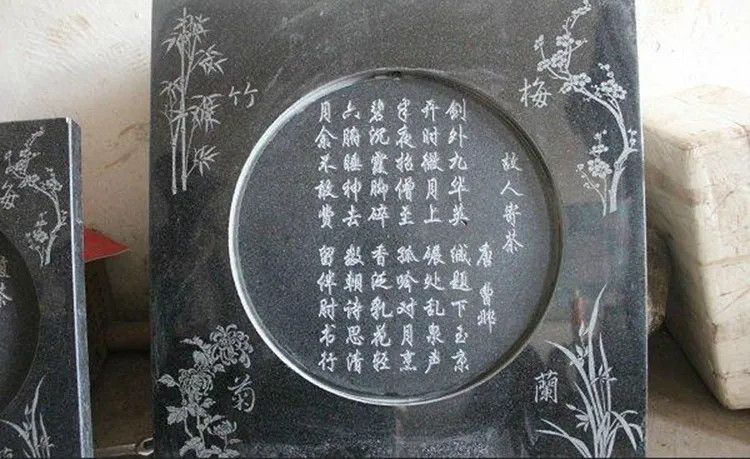 梅
竹
故人寄茶
唐 曹邺
剑外九华英 缄题下玉京
开时微月上 碾处乱泉声
半夜招僧至 孤吟对月烹
碧沉霞脚碎 香泛乳花轻
六腑睡神去 数朝诗思清
月余不敢费 留伴肘书行
蘭
菊
梅
茶